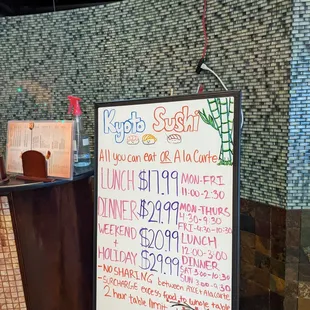 Kyoto Sushi
All you can eat OR A la Carte
LUNCH $17.99 MON-FRI
11:00-2:30
DINNER $29.99 MON-THURS
4:30-9:30
FRI-4:30-10:30
WEEKEND $20.99 LUNCH
+ 12:00-3:00
HOLIDAY $29.99 DINNER
SAT 3:00-10:30
SUN 3:00-9:30
- NO SHARING between AYCE + A la carte
- SURCHARGE excess food to whole table
- 2 hour table limit